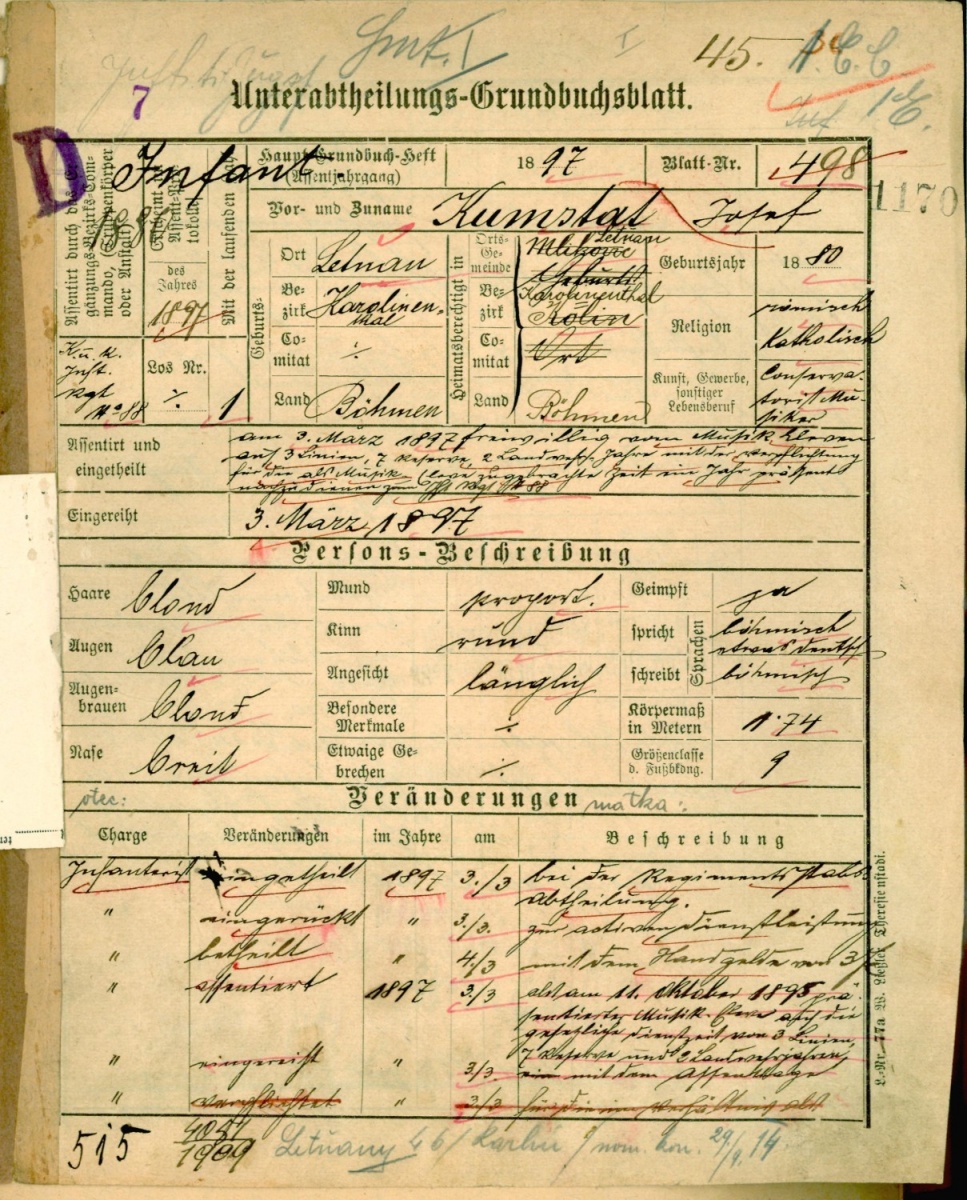 45.
7
Unterabtheilungs-Grundbuchsblatt.
D
Infant.
Haupt-Grundbuch-Heft
(Assentjahrgang)
1897
Blatt-Nr.
498
1170
Vor- und Zuname Kumstat Josef
des
Jahres
1897
Mit der laufenden
K. u. k.
Inft.
Rgt
No 88
Los Nr.
÷
1
Geburts-
Ort Letnau
Be-
zirk Karolinen-
thal
Co-
mitat ÷
Land Böhmen
Heimatsberechtigt in
Orts-
Ge-
meinde
Letnau
Be-
zirk
Karolinenthal
Kolin
Co-
mitat
Ort
Land Böhmen
Geburtsjahr 1880
Religion römisch
Katholisch
Kunst, Gewerbe,
sonstiger
Lebensberuf
Conserva-
torist Mu-
siker
Assentirt und
eingetheilt
am 3. März 1897 freiwillig vom Musik Eleven
auf 3 Linien, 7 Reserve, 2 Landwehr Jahre mit der Verpflichtung
für die als Musik Eleve zugebrachte Zeit ein Jahr präsent
nachzudienen zum Inft Rgt No 88
Eingereiht 3. März 1897
Persons-Beschreibung
Haare blond
Mund proport.
Geimpft ja
Augen blau
Kinn rund
spricht
Sprachen
böhmisch
etwas deutsch
Angesicht länglich
schreibt böhmisch
Augen-
brauen blond
Besondere
Merkmale ÷
Körpermaß
in Metern 1·74
Nase breit
Etwaige Ge-
brechen ÷
Größenclasse
d. Fußbkdg. 9
otec:
Veränderungen
matka:
Charge Veränderungen im Jahre am Beschreibung
Infanterist eingetheilt 1897 3./3 bei der Regiments stabs
abtheilung.
" eingerückt " 3./3. zur activen Dienstleistung
" betheilt " 4./3 mit dem Handgelde von 3
" assentiert 1897 3./3 als am 11. Oktober 1895 prä-
sentierter Musik-Eleve auf die
gesetzliche Dienstzeit von 3 Linien,
7 Reserve und 2 Landwehrjahren,
" eingereiht " 3./3 mit dem Assenttage
" verpflichtet " 3/3 für die im Verhältnis als
L.-Nr. 77a
515
1909
Letňany 46/ Karlín / nom. kon. 29/9. 14.